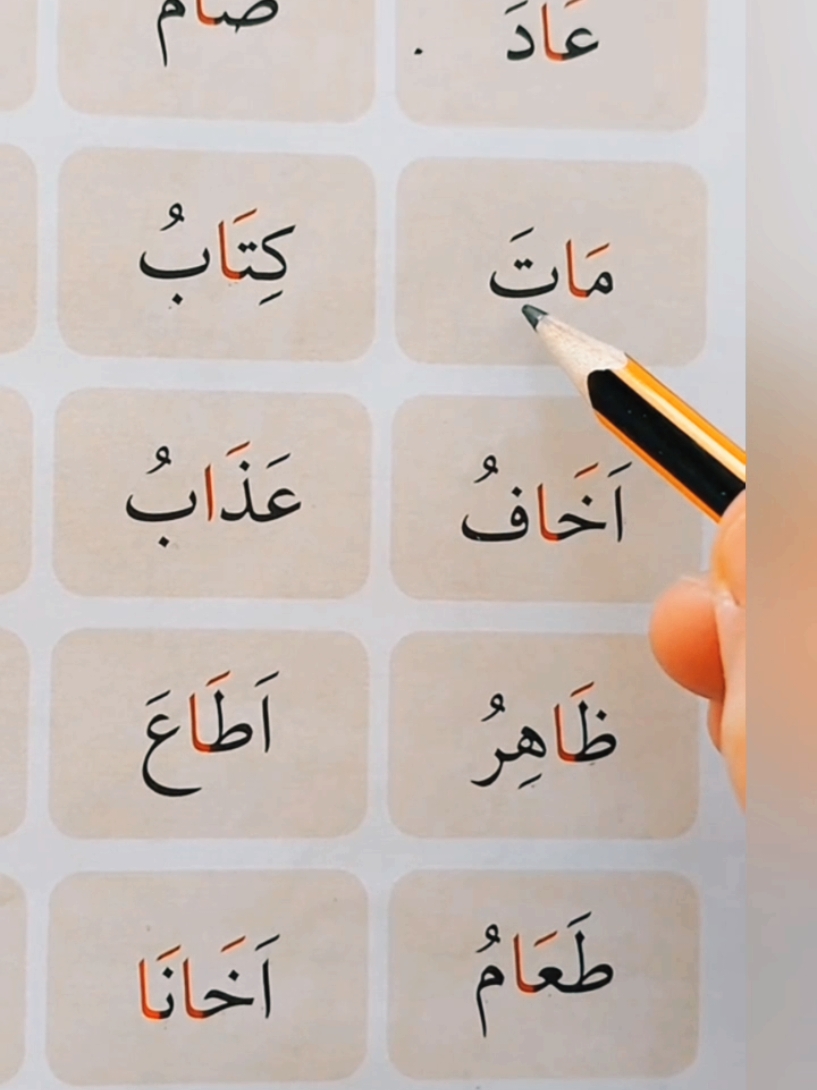 عَادَ صَامَ
مَاتَ كِتَابُ
اَخَافُ عَذَابُ
ظَاهِرُ اَطَاعَ
طَعَامُ اَخَانَا